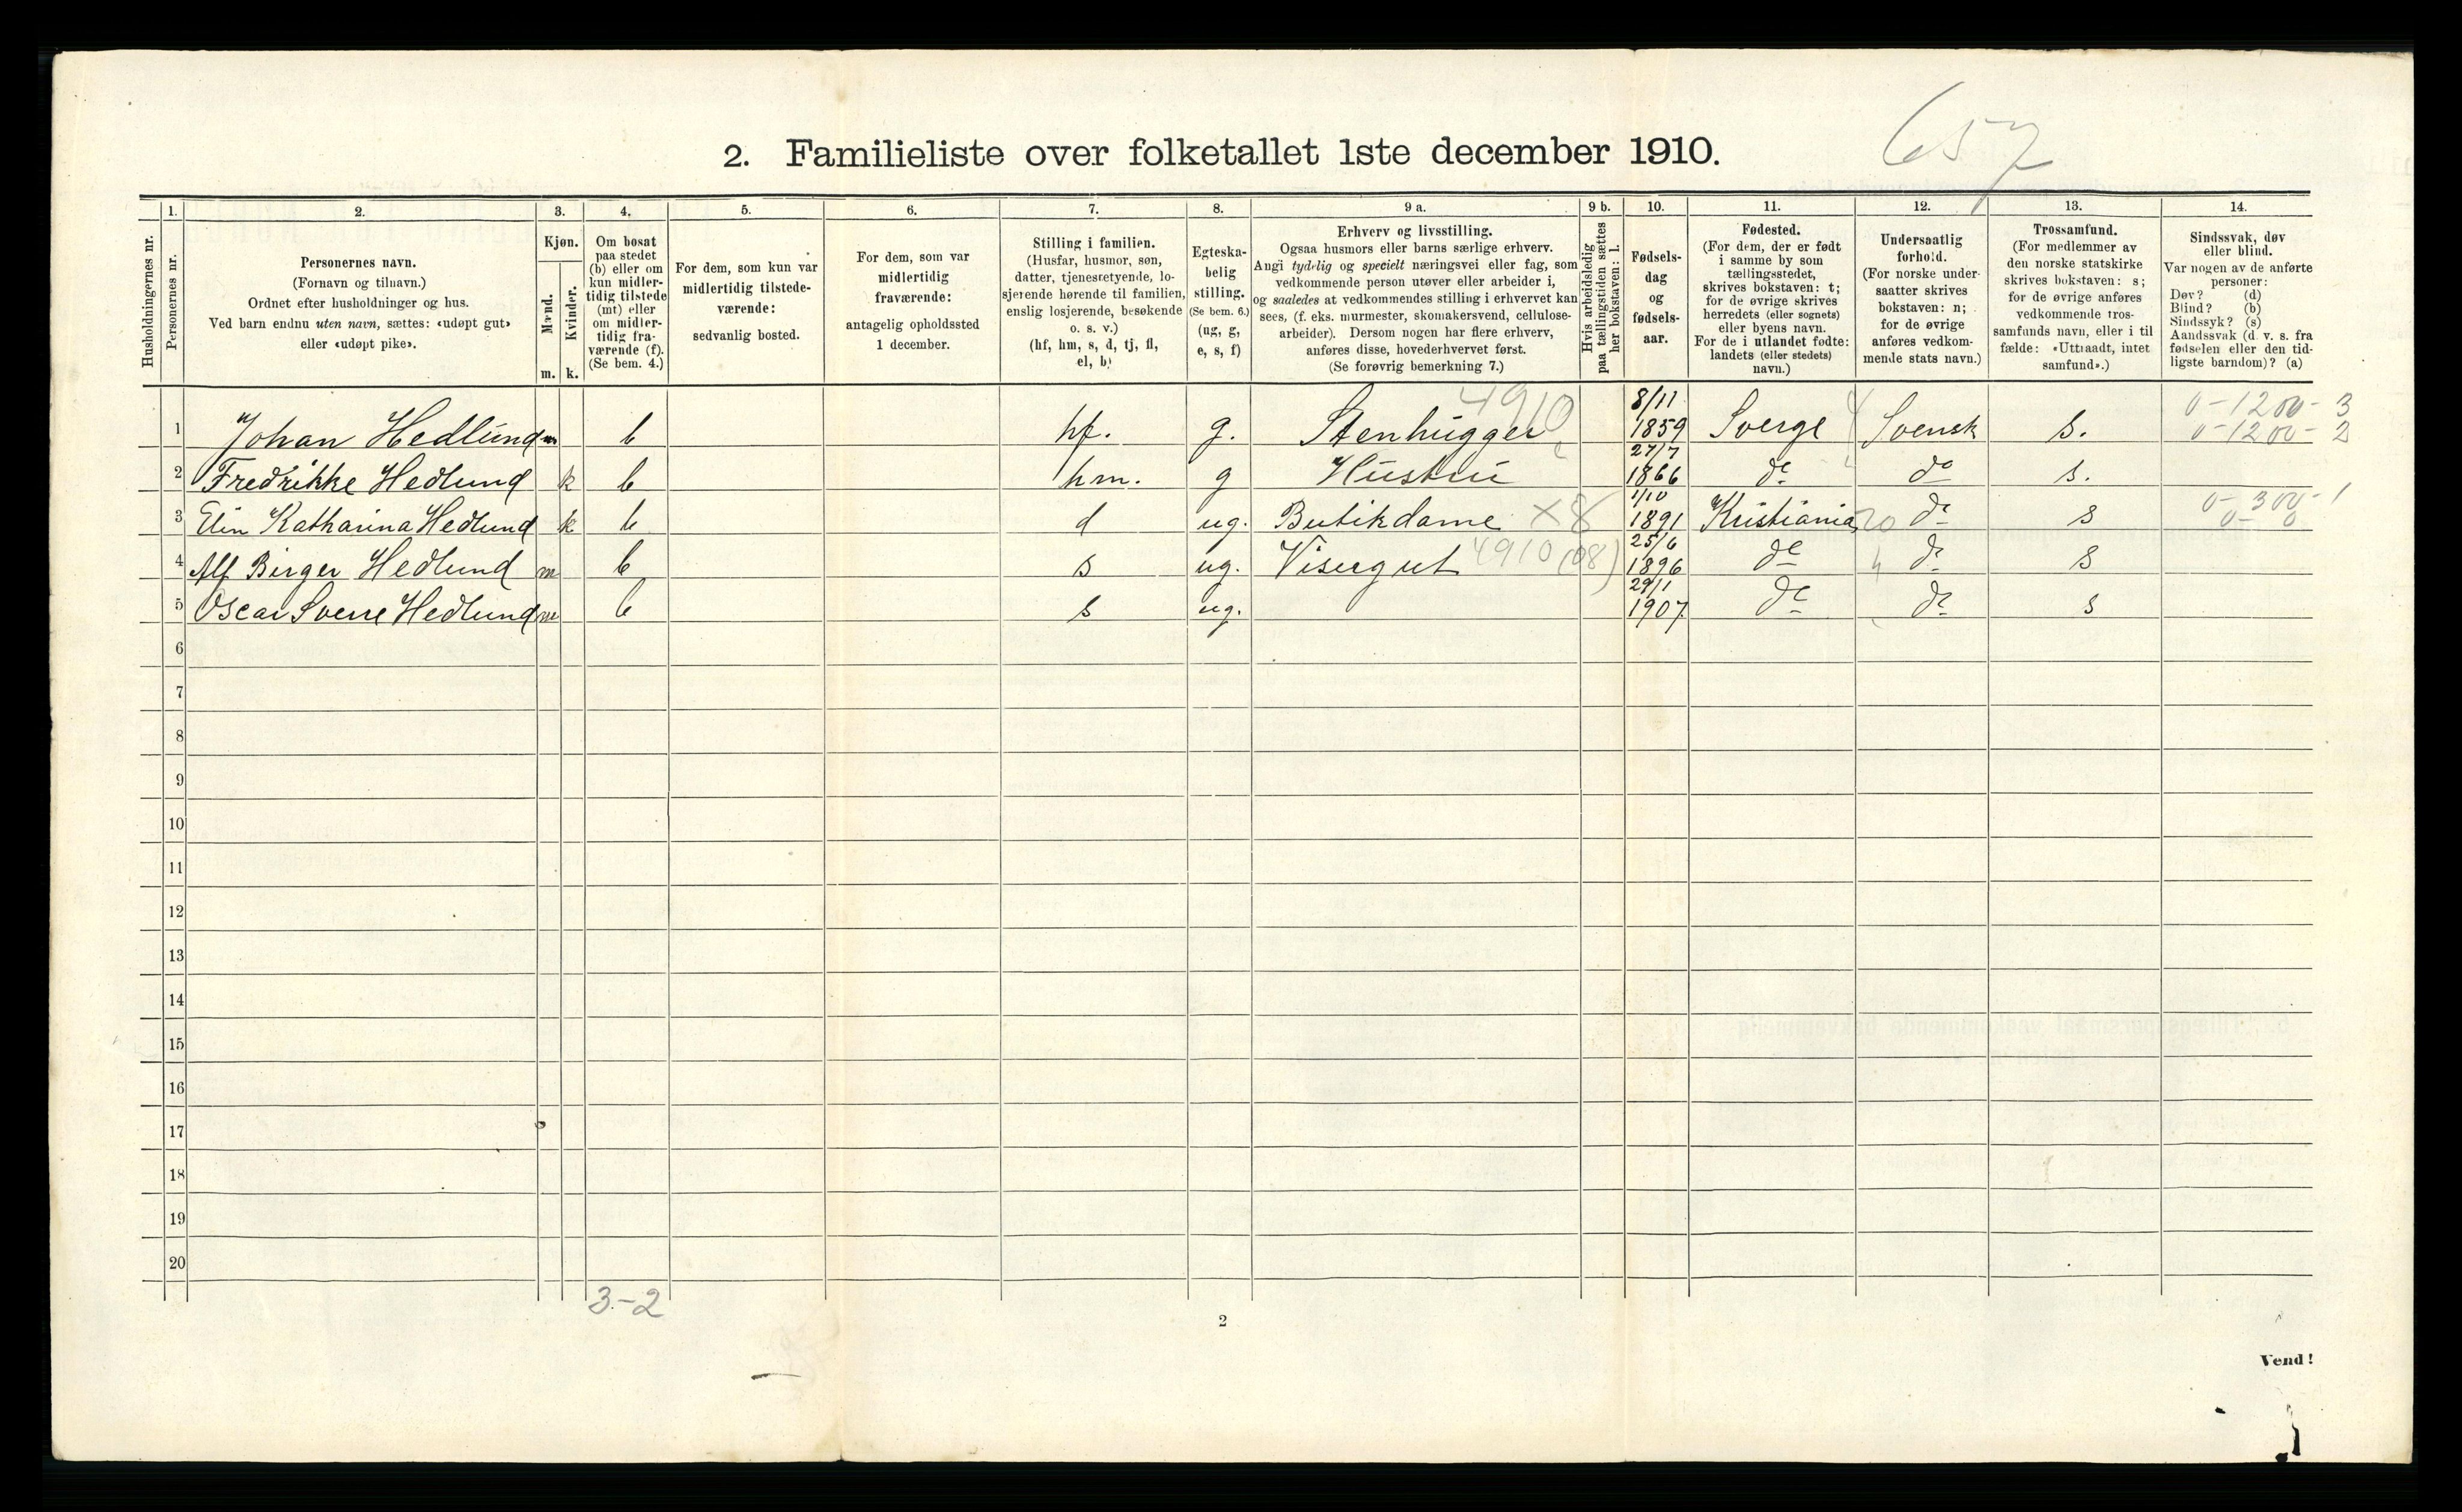 657
2. Familieliste over folketallet 1ste december 1910.
Husholdningernes nr.
1. Personernes nr.
2. Personernes navn. (Fornavn og tilnavn.) Ordnet efter husholdninger og hus. Ved barn endnu uten navn, sættes: «udøpt gut» eller «udøpt pike».
3. Kjøn. Mænd. m. Kvinder. k.
4. Om bosat paa stedet (b) eller om kun midlertidig tilstede (mt) eller om midlertidig fraværende (f). (Se bem. 4.)
5. For dem, som kun var midlertidig tilstedeværende: sedvanlig bosted.
6. For dem, som var midlertidig fraværende: antagelig opholdssted 1 december.
7. Stilling i familien. (Husfar, husmor, søn, datter, tjenestetyende, losjerende hørende til familien, enslig losjerende, besøkende o. s. v.) (hf, hm, s, d, tj, fl, el, b)
8. Egteskabelig stilling. (Se bem. 6.) (ug, g, e, s, f)
9 a. Erhverv og livsstilling. Ogsaa husmors eller barns særlige erhverv. Angi tydelig og specielt næringsvei eller fag, som vedkommende person utøver eller arbeider i, og saaledes at vedkommendes stilling i erhvervet kan sees, (f. eks. murmester, skomakersvend, cellulosearbeider). Dersom nogen har flere erhverv, anføres disse, hovederhvervet først. (Se forøvrig bemerkning 7.)
9 b. Hvis arbeidsledig paa tællingstiden sættes her bokstaven: l.
10. Fødselsdag og fødselsaar.
11. Fødested. (For dem, der er født i samme by som tællingsstedet, skrives bokstaven: t; for de øvrige skrives herredets (eller sognets) eller byens navn. For de i utlandet fødte: landets (eller stedets) navn.)
12. Undersaatlig forhold. (For norske undersaatter skrives bokstaven: n; for de øvrige anføres vedkommende stats navn.)
13. Trossamfund. (For medlemmer av den norske statskirke skrives bokstaven: s; for de øvrige anføres vedkommende trossamfunds navn, eller i tilfælde: «Uttraadt, intet samfund».)
14. Sindssvak, døv eller blind. Var nogen av de anførte personer: Døv? (d) Blind? (b) Sindssyk? (s) Aandssvak (d. v. s. fra fødselen eller den tidligste barndom)? (a)
1 Johan Hedlund m b hf. g. Stenhugger 4910 8/11 1859 Sverge Svensk s. 0-1200-3 0-1200-2
2 Fredrikke Hedlund k b hm. g Hustru 27/7 1866 do do s.
3 Elin Katharina Hedlund k b d ug. Butikdame X8 1/10 1891 Kristiania 20 do s 0-300-1 0-0
4 Alf Birger Hedlund m b s ug. Visergut 4910 (08) 25/6 1896 do do s
5 Oscar Sverre Hedlund m b s ug. 29/1 1907. do do s
6
7
8
9
10
11
12
13
14
15
16
17
18
19
20
3-2
2
Vend!